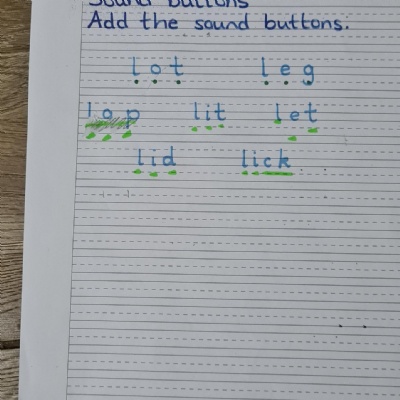 Sound buttons
Add the sound buttons.
lot leg
lop lit let
lid lick